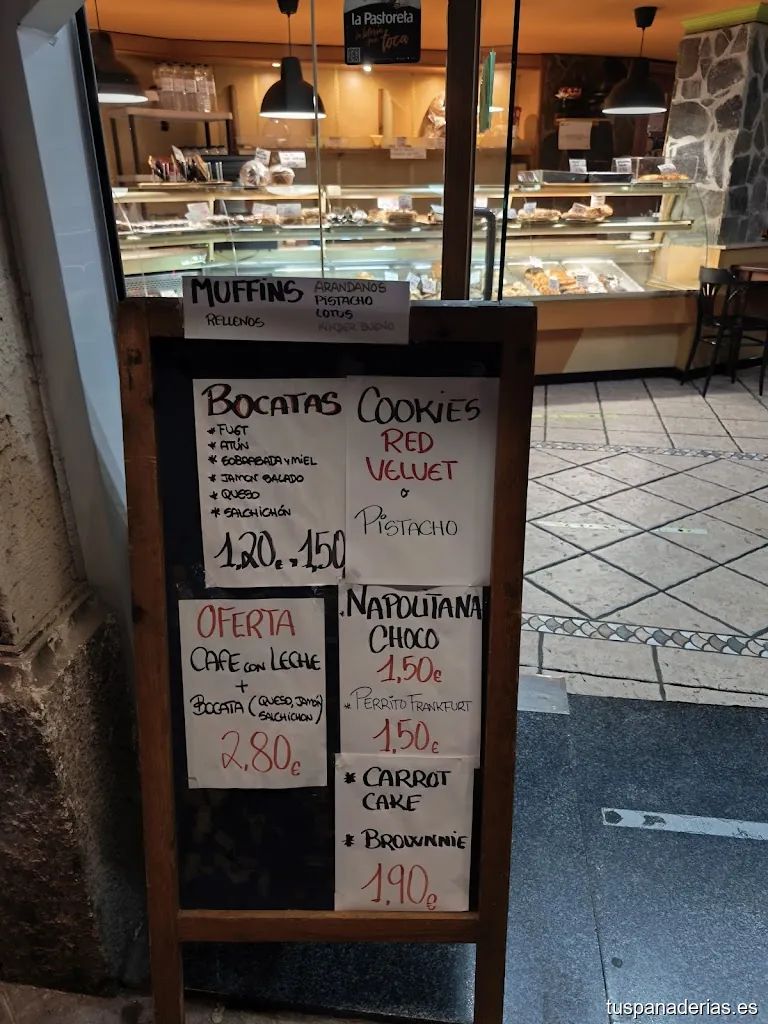 la Pastoreta
toca
MUFFINS
RELLENOS
ARANDANOS
PISTACHO
LOTUS
KINDER BUENO
BOCATAS
* FUET
* ATÚN
* SOBRASADA Y MIEL
* JAMON SALADO
* QUESO
* SALCHICHÓN
1,20€ . 1,50
COOKIES
RED
VELVET
o
PISTACHO
OFERTA
CAFE CON LECHE
+
BOCATA (QUESO, JAMÓN
SALCHICHON)
2,80€
NAPOLITANA
CHOCO
1,50€
* PERRITO FRANKFURT
1,50€
* CARROT
CAKE
* BROWNNIE
1,90€
tuspanaderias.es